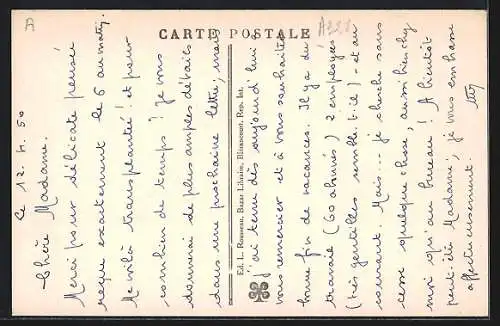 CARTE POSTALE
A221
Le 12.4.50
Chère Madame.
Merci pour délicate pensée
reçue exactement le 6 au matin.
Me voilà transplanté ! et pour
combien de temps ? Je vous
donnerai de plus amples détails
dans une prochaine lettre, mais
Ed. L. Rousseau, Bazar Libraire, Rep. Int.
j'ai tenu dès aujourd'hui
vous remercier et à vous souhaiter
bonne fin de vacances. Il y a du
travail (600 abonnés) 2 employées
(très gentilles semble-t-il) - et au
courant. Mais... je cherche sans
cesse quelque chose, aussi bien chez
moi qu'au bureau ! A bientôt
peut-être Madame, je vous embrasse
affectueusement.